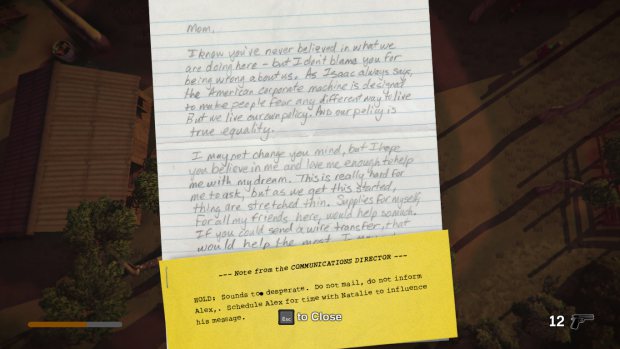 Mom,
I know you've never believed in what we
are doing here - but I don't blame you for
being wrong about us. As Isaac always says,
the American corporate machine is designed
to make people fear any different way to live
But we live our own policy. And our policy is
true equality.
I may not change you mind, but I hope
you believe in me and love me enough to help
me with my dream. This is really hard for
me to ask, but as we get this started,
thing are stretched thin. Supplies for myself,
For all my friends here, would help so much.
If you could send a wire transfer, that
would help the most. I
--- Note from the COMMUNICATIONS DIRECTOR ---
HOLD: Sounds too desperate. Do not mail, do not inform
Alex,. Schedule Alex for time with Natalie to influence
his message.
Esc to Close
12